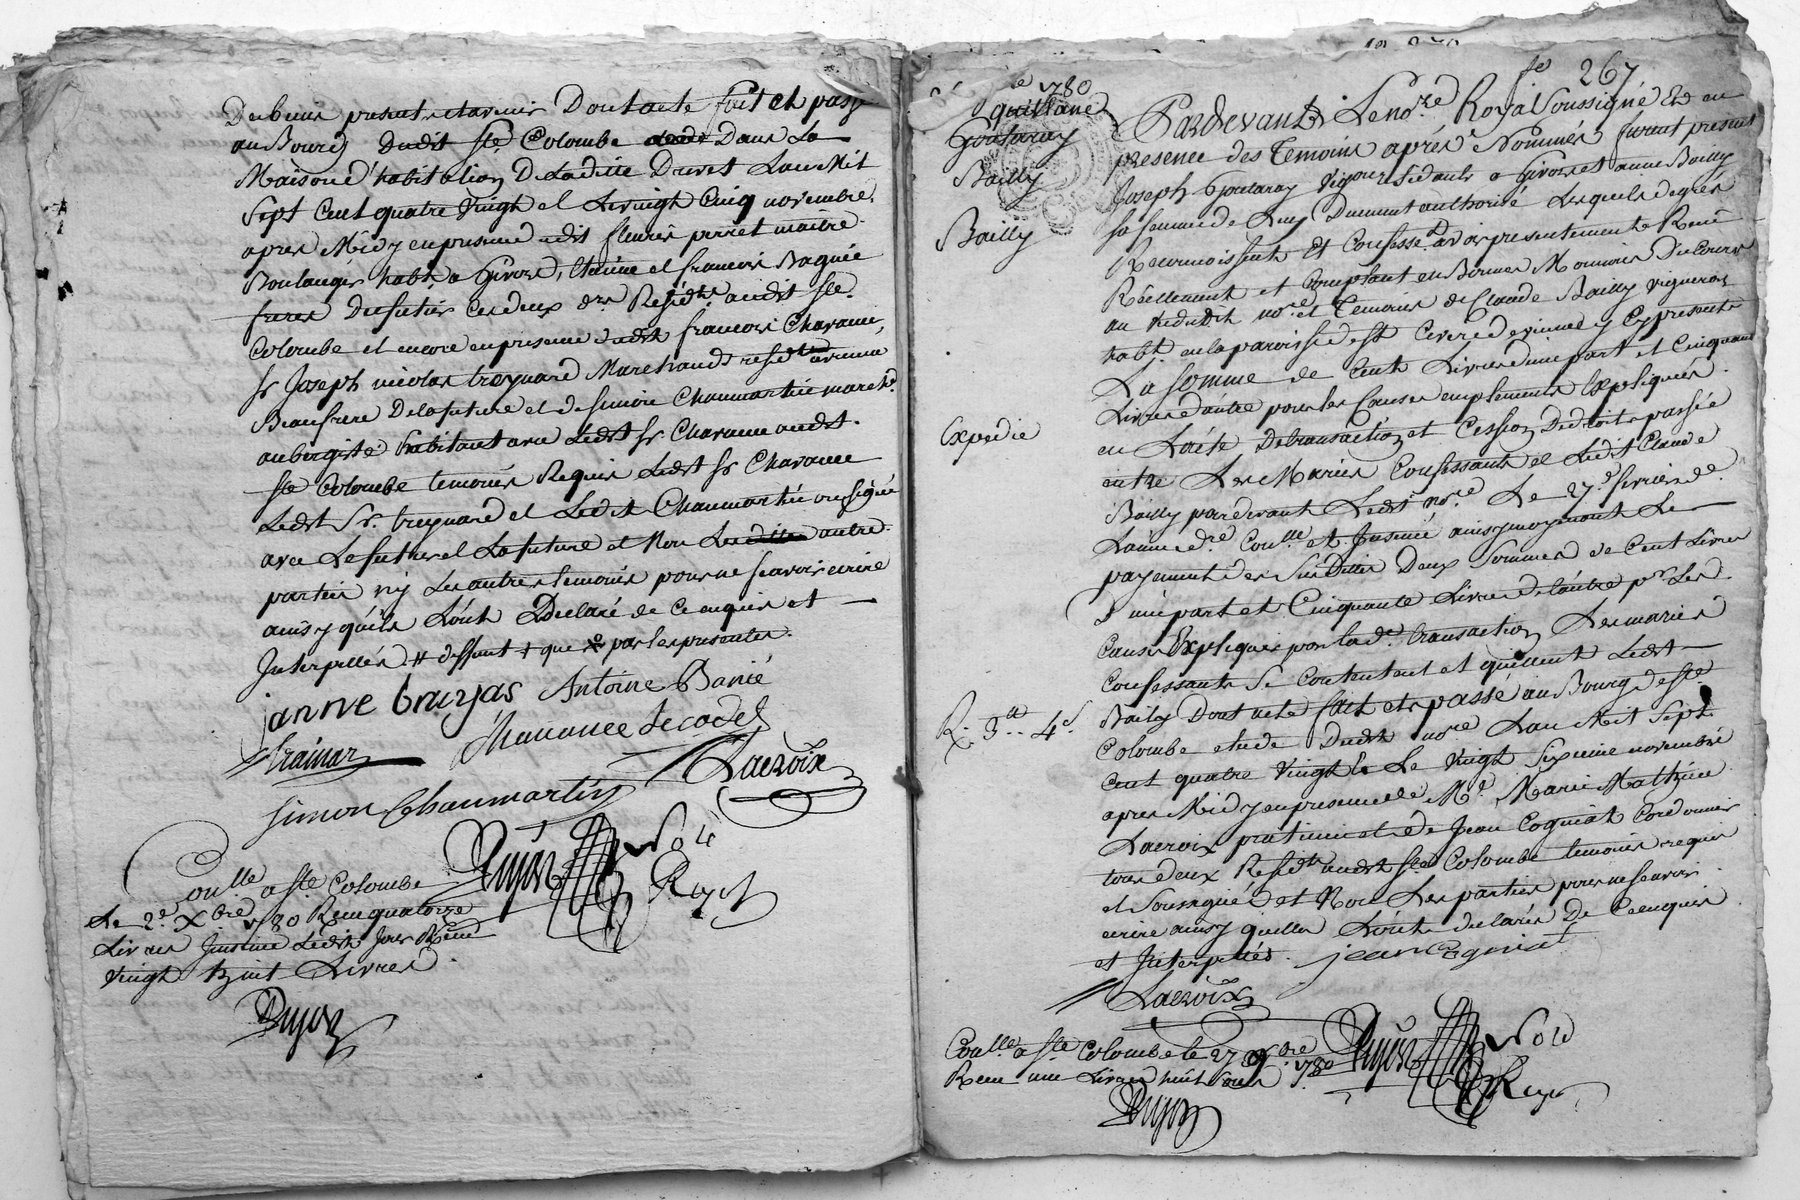 Des biens presents et avenir Dont acte fait et passé
au Bourg dudit Ste Colombe dans La
Maison d'habitation De Ladite Druvet Lan Mil
Sept Cent quatre Vingt et Le vingt Cinq novembre
apres Midy en presence dudit fleuris perret maitre
Boulanger habt. a Givors, Etienne et francois Baguée
freres Ces deux drs Residts audit Ste.
Colombe et encore en presence dudit francois Chavance,
sr Joseph nicolas treynard Marchands residt a vienne
Beaufrere De la future et de Simon Chaumartin marchd
aubergiste habitant avec Ledit sr Chavance audit.
Ste Colombe temoins Requis Ledit sr Chavance
Ledit Sr. treynard et Ledit Chaumartin ont signé
avec Le futur et La future et Non Les autres
parties ny Les autres temoins pour ne scavoir ecrire
ainsy qu'ils L'ont Declaré de ce enquis et
Interpellés # deffunt + que par les presentes.
janne bruyas Antoine Banié
Chavance
Simon Chaumartin Lacroix
Dujon Nore
Royal
Conllé a Ste Colombe
Le 2e. Xbre 1780 Recu quatorze
Livres Insinué Ledit Jour Recu
Vingt huit Livres
Dujon
fe 267
1780
quittance
Goutaray
Bailly
Bailly
Pardevant Le nore. Royal Soussigné Et en
presence des temoins apres Nommés furent present
Joseph Goutaray Vigneron residant a Givors et anne Bailly
sa femme de Luy Duement authorisé Lesquels de gré
Reconnoissent Et Confessent avoir presentement Recu
Réellement et Comptant en Bonnes Monnoies Du Cours
au vu dudit nore et temoins de Claude Bailly vigneron
habt. en la paroisse de St Cire de vienne y Cy present
La Somme de Cent Livres d'une part et Cinquante
Livres d'autre pour les Causes amplement Expliquées
en L'acte De transaction et Cession De droits passée
entre Les Mariés Confessants et Ledit Claude
Bailly pardevant Ledit nore Le 27e fevrier de
Lannée dre Conllé et Insinué ainsy moyenant Le
payement des Susdittes Deux Sommes de Cent Livres
d'une part et Cinquante Livres de L'autre pr Les
Causes Expliquées par la de. transaction Les mariés
Confessants Se Contentent et quittent Ledit
Bailly Dont acte fait et passé au Bourg de Ste
Colombe etude Dudit nore Lan Mil Sept
Cent quatre Vingt Le Vingt Sixieme novembre
apres Midy en presence de Me. Marie Mathieu
Lacroix praticien et de Jean Cogniat Cordonnier
tous deux Residts audit Ste Colombe temoins requis
et Soussignés et Non Les parties pour ne Scavoir
ecrire ainsy quelles L'ont declaré De Ce enquis
et Interpellés. jean Cogniat
Lacroix
Expedié
R. 3ll 4s
Conllé a Ste Colombe le 27 9bre 1780
Recu une Livres huit Sous
Dujon Nore
Royal
Dujon